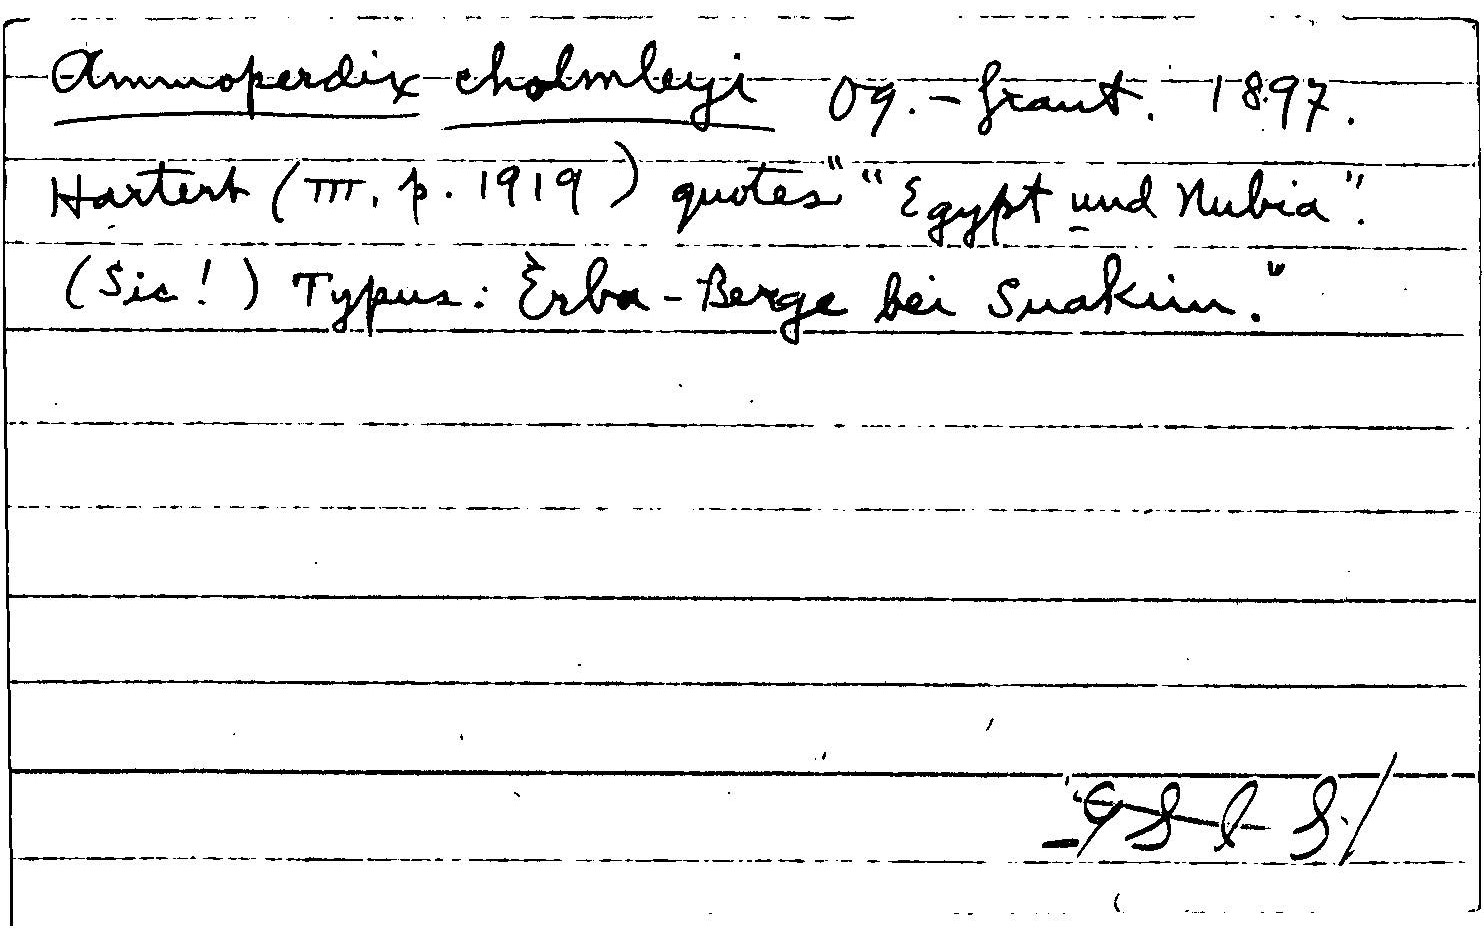 Ammoperdix cholmleyi Og.-Grant. 1897.
Hartert (III, p. 1919) quotes "“Egypt und Nubia”.
(Sic!) Typus: Erba-Berge bei Suakim."